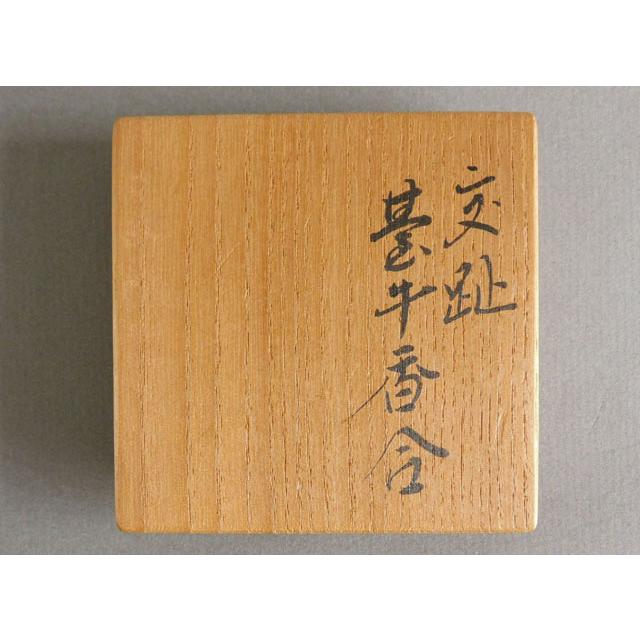 交趾
臺牛香合